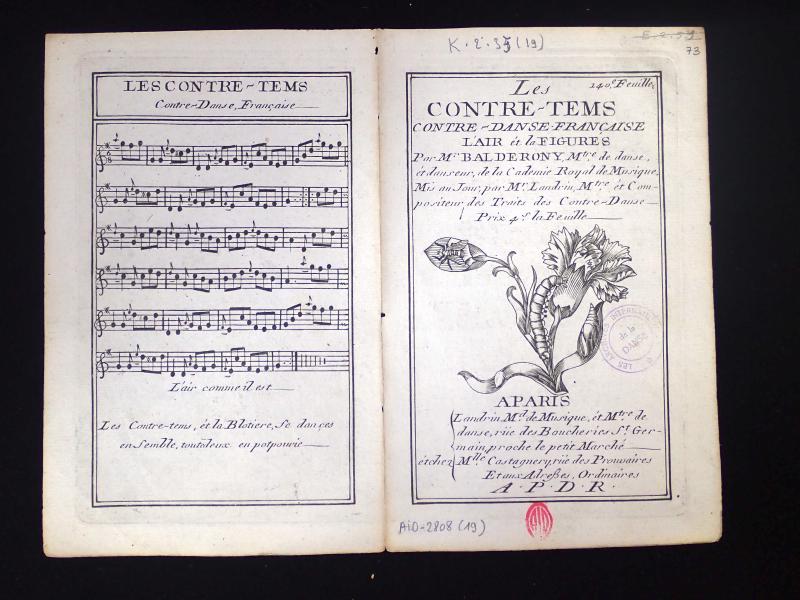 LES CONTRE-TEMS
Contre-Danse, Française
L'air comme il est
Les Contre-tems, ét la Blotiere, Se dançes
en Semble, toutdeux en potpourie
K. 2. 35 (19)
73
140.e Feuille
Les
CONTRE-TEMS
CONTRE-DANSE-FRANÇAISE
L'AIR ét la FIGURES
Par Mr. BALDERONY, Mtre. de danse,
ét danseur, de la Cademie Royal de Musique,
Mis au Jour, par Mr. Landrin, Mtre. ét Com-
positeur, des Traits des Contre-Danse
Prix 4 s. la Feuille
LES ARCHIVES INTERNATIONALES
de la
DANSE
A PARIS
Landrin Md. de Musique, ét Mtre. de
danse, rüe des Boucheries St. Ger-
main, proche le petit Marché
ét chez Mlle. Castagnery, rüe des Prouvaires
Et aux Adreßes, Ordinaires
A. P. D. R.
AID-2808 (19)